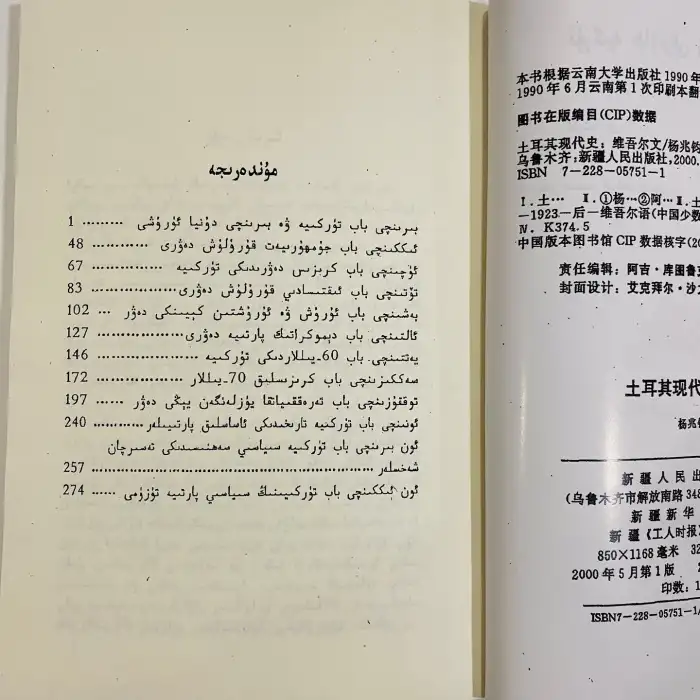 مۇندەرىجە
بىرىنچى باب تۈركىيە ۋە بىرىنچى دۇنيا ئۇرۇشى ......... 1
ئىككىنچى باب جۇمھۇرىيەت قۇرۇلۇش دەۋرى ............... 48
ئۈچىنچى باب كرىزىس دەۋرىدىكى تۈركىيە ............... 67
تۆتىنچى باب ئىقتىسادىي قۇرۇلۇش دەۋرى ............... 83
بەشىنچى باب ئۇرۇش ۋە ئۇرۇشتىن كېيىنكى دەۋر ...... 102
ئالتىنچى باب دېموكراتىك پارتىيە دەۋرى .................. 127
يەتتىنچى باب 60-يىللاردىكى تۈركىيە ..................... 146
سەككىزىنچى باب كرىزىسلىق 70-يىللار .................. 172
توققۇزىنچى باب تەرەققىياتقا يۈزلەنگەن يېڭى دەۋر ...... 197
ئونىنچى باب تۈركىيە تارىخىدىكى ئاساسلىق پارتىيىلەر ...... 240
ئون بىرىنچى باب تۈركىيە سىياسىي سەھنىسىدىكى تەسىرچان
شەخسلەر ............................................................ 257
ئون ئىككىنچى باب تۈركىيىنىڭ سىياسىي پارتىيە تۈزۈمى ...... 274
本书根据云南大学出版社1990年
1990年6月云南第1次印刷本翻
图书在版编目(CIP)数据
土耳其现代史:维吾尔文/杨兆钧
乌鲁木齐:新疆人民出版社,2000.
ISBN 7-228-05751-1
Ⅰ.土… Ⅱ.①杨…②阿…Ⅲ.土
-1923-后-维吾尔语(中国少数
Ⅳ.K374.5
中国版本图书馆CIP数据核字(20
责任编辑:阿吉·库图鲁克
封面设计:艾克拜尔·沙
土耳其现代
杨兆
新疆人民出
(乌鲁木齐市解放南路348
新疆新华
新疆《工人时报》
850×1168毫米 32
2000年5月第1版
印数:1
ISBN7-228-05751-1/